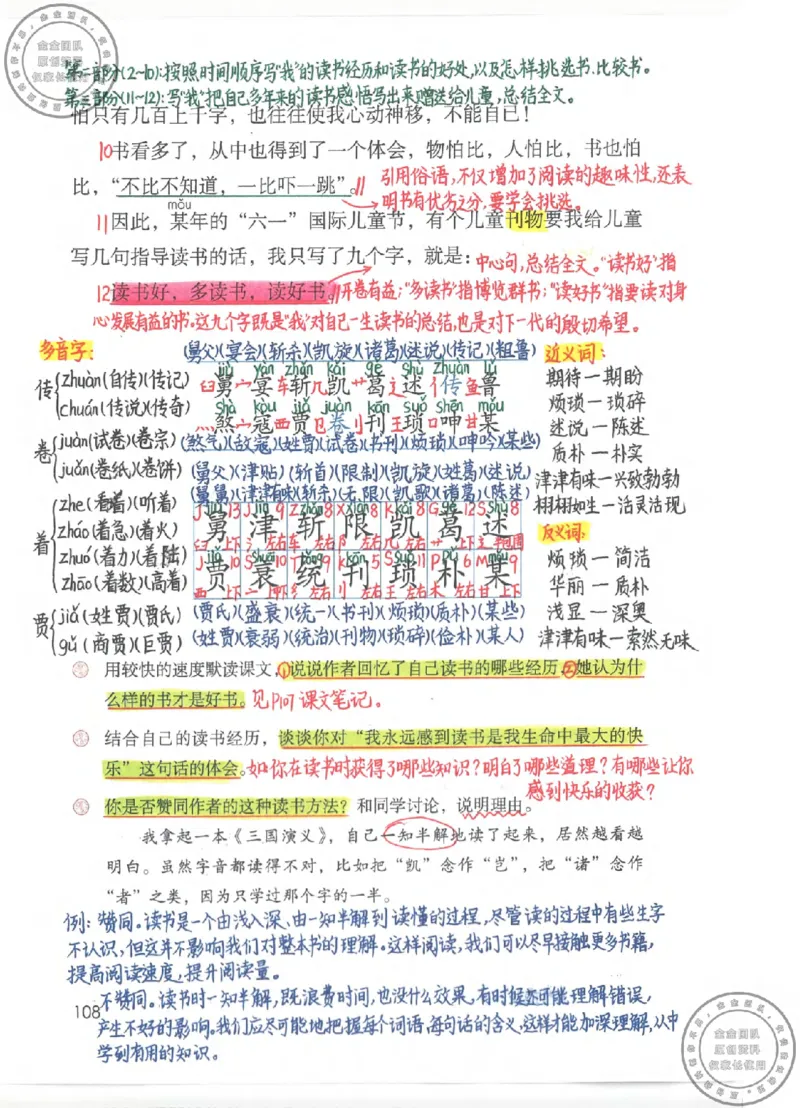 金金团队
原创资料
仅家长使用
第二部分(2~10):按照时间顺序写"我"的读书经历和读书的好处,以及怎样挑选书、比较书。
第三部分(11~12):写"我"把自己多年来的读书感悟写出来赠送给儿童,总结全文。
怕只有几百上千字,也往往使我心动神移,不能自已!
10书看多了,从中也得到了一个体会,物怕比,人怕比,书也怕
比,“不比不知道,一比吓一跳”。
引用俗语,不仅增加了阅读的趣味性,还表
明书有优劣之分,要学会挑选。
mǒu
11因此,某年的“六一”国际儿童节,有个儿童刊物要我给儿童
写几句指导读书的话,我只写了九个字,就是:
中心句,总结全文。"读书好"指
12读书好,多读书,读好书。
开卷有益;"多读书"指博览群书;"读好书"指要读对身
心发展有益的书。这九个字既是"我"对自己一生读书的总结,也是对下一代的殷切希望。
多音字:
传 zhuàn(自传)(传记)
chuán(传说)(传奇)
卷 juàn(试卷)(卷宗)
juǎn(卷纸)(卷饼)
着 zhe(看着)(听着)
zháo(着急)(着火)
zhuó(着力)(着陆)
zhāo(着数)(高着)
贾 jiǎ(姓贾)(贾氏)
gǔ(商贾)(巨贾)
(舅父)(宴会)(斩杀)(凯旋)(诸葛)(述说)(传记)(粗鲁)
jiù yàn zhǎn kǎi gě shù zhuàn lǔ
舅 宴 斩 凯 葛 述 传 鲁
shà kòu jiǎ juàn kān suǒ shēn mǒu
煞 寇 贾 卷 刊 琐 呻 某
(煞气)(敌寇)(姓贾)(试卷)(书刊)(烦琐)(呻吟)(某些)
(舅父)(津贴)(斩首)(限制)(凯旋)(姓葛)(述说)
(舅舅)(津津有味)(斩杀)(无限)(凯歌)(诸葛)(陈述)
舅 津 斩 限 凯 葛 述
贾 衰 统 刊 琐 朴 某
(贾氏)(盛衰)(统一)(书刊)(烦琐)(质朴)(某些)
(姓贾)(衰弱)(统治)(刊物)(琐碎)(俭朴)(某人)
近义词:
期待—期盼
烦琐—琐碎
述说—陈述
质朴—朴实
津津有味—兴致勃勃
栩栩如生—活灵活现
反义词:
烦琐—简洁
华丽—质朴
浅显—深奥
津津有味—索然无味
用较快的速度默读课文,①说说作者回忆了自己读书的哪些经历,②她认为什
么样的书才是好书。见P107课文笔记。
结合自己的读书经历,谈谈你对“我永远感到读书是我生命中最大的快
乐”这句话的体会。如你在读书时获得了哪些知识?明白了哪些道理?有哪些让你
感到快乐的收获?
你是否赞同作者的这种读书方法?和同学讨论,说明理由。
我拿起一本《三国演义》,自己一知半解地读了起来,居然越看越
明白。虽然字音都读得不对,比如把“凯”念作“岂”,把“诸”念作
“者”之类,因为只学过那个字的一半。
例:赞同。读书是一个由浅入深、由一知半解到读懂的过程,尽管读的过程中有些生字
不认识,但这并不影响我们对整本书的理解。这样阅读,我们可以尽早接触更多书籍,
提高阅读速度,提升阅读量。
不赞同。读书时一知半解,既浪费时间,也没什么效果,有时候还可能理解错误,
产生不好的影响。我们应尽可能地把握每个词语、每句话的含义,这样才能加深理解,从中
学到有用的知识。
108
金金团队
原创资料
仅家长使用